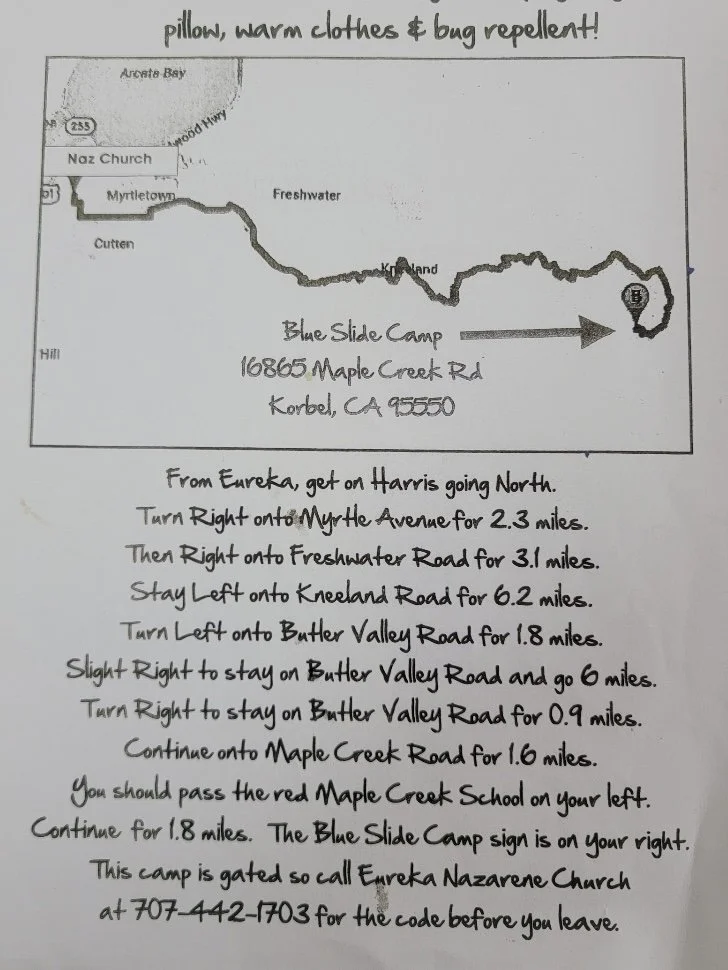 pillow, warm clothes & bug repellent!
Arcata Bay
255
wood Hwy
Naz Church
Myrtletown
Freshwater
Cutten
Kneeland
B
Blue Slide Camp
Hill
16865 Maple Creek Rd
Korbel, CA 95550
From Eureka, get on Harris going North.
Turn Right onto Myrtle Avenue for 2.3 miles.
Then Right onto Freshwater Road for 3.1 miles.
Stay Left onto Kneeland Road for 6.2 miles.
Turn Left onto Butler Valley Road for 1.8 miles.
Slight Right to stay on Butler Valley Road and go 6 miles.
Turn Right to stay on Butler Valley Road for 0.9 miles.
Continue onto Maple Creek Road for 1.6 miles.
You should pass the red Maple Creek School on your left.
Continue for 1.8 miles. The Blue Slide Camp sign is on your right.
This camp is gated so call Eureka Nazarene Church
at 707-442-1703 for the code before you leave.